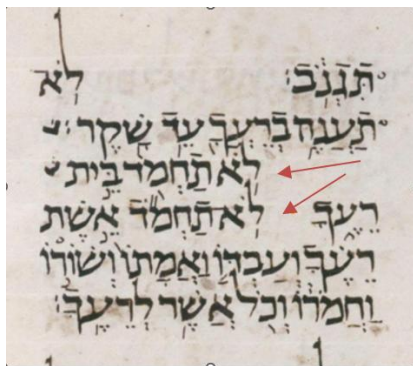 תִּֿגְנֹֽ֔ב׃ לֹא
תַעֲנֶ֥ה בְרֵעֲךָ֖ עֵ֥ד שָֽׁקֶר׃
לֹ֥א תַחְמֹ֖ד בֵּ֣ית
רֵעֶ֑ךָ לֹא תַחְמֹ֞ד אֵ֣שֶׁת
רֵעֶ֗ךָ וְעַבְדּ֤וֹ וַאֲמָתוֹ֙ וְשׁוֹר֣וֹ
וַחֲמֹר֔וֹ וְכֹ֖ל אֲשֶׁ֥ר לְרֵעֶֽךָ׃